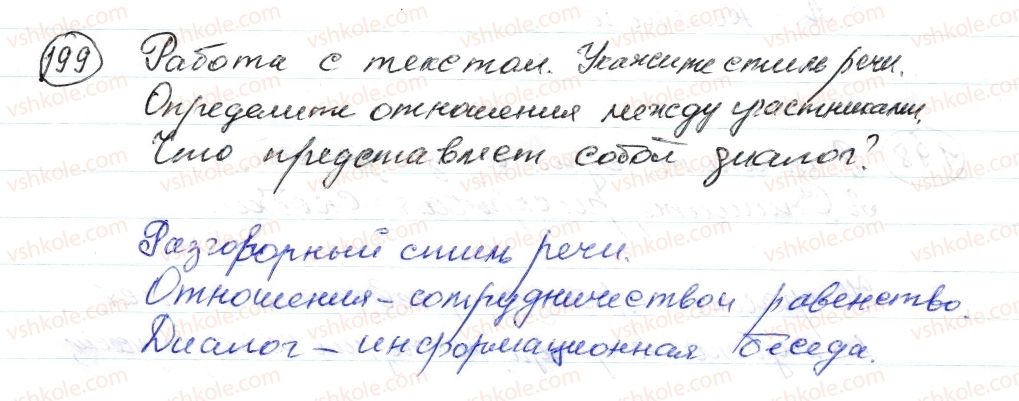 199 Работа с текстом. Укажите стиль речи.
Определите отношения между участниками.
Что представляет собой диалог?
Разговорный стиль речи.
Отношения – сотрудничество и равенство.
Диалог – информационная беседа.
vshkole.com